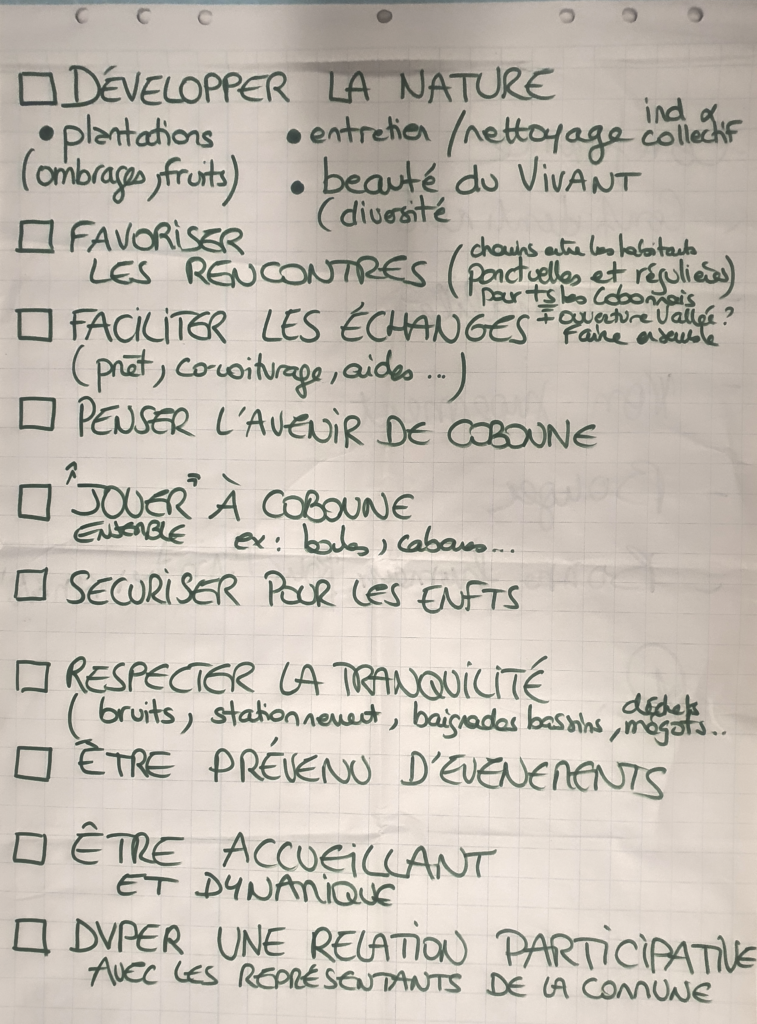 DÉVELOPPER LA NATURE
• plantations
(ombrages, fruits)
• entretien / nettoyage ind & collectif
• beauté du VIVANT
(diversité
FAVORISER
LES RENCONTRES (ponctuelles et régulières)
entre les habitants
pour ts les Cobonnois
+ ouverture Vallée ?
Faire ensemble
FACILITER LES ÉCHANGES
(prêt, co-voiturage, aides ...)
PENSER L'AVENIR DE COBONNE
"JOUER" À COBONNE
ENSEMBLE ex : boules, cabanes...
SECURISER POUR LES ENFTS
RESPECTER LA TRANQUILITÉ
(bruits, stationnement, baignades bassins, déchets mégots..
ÊTRE PRÉVENU D'EVENEMENTS
ÊTRE ACCUEILLANT
ET DYNAMIQUE
DVPER UNE RELATION PARTICIPATIVE
AVEC LES REPRÉSENTANTS DE LA COMMUNE